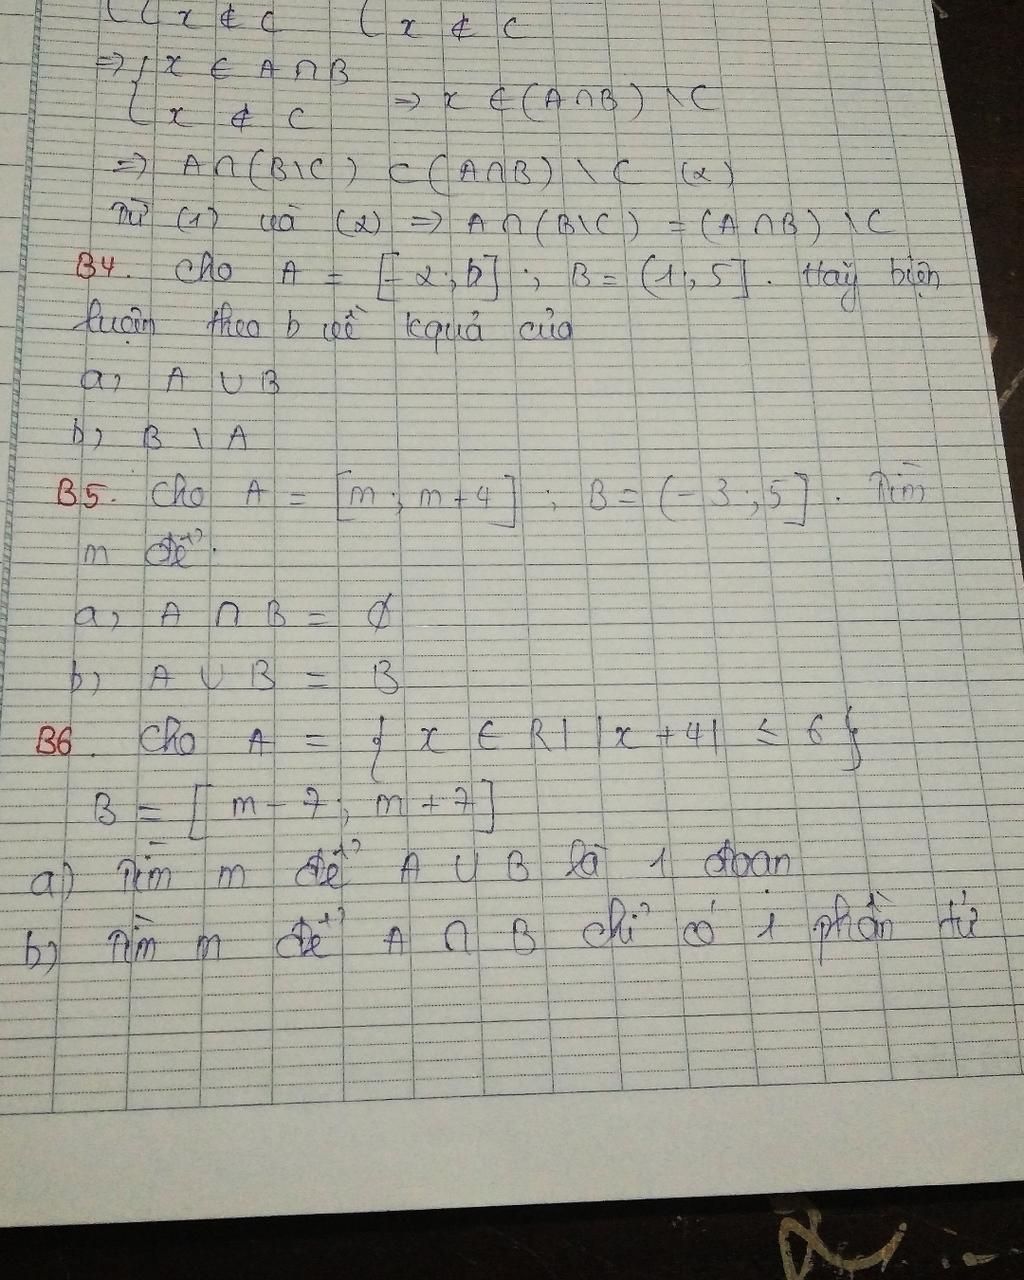 ( ( x ∉ C ( x ∉ C
=> { x ∈ A ∩ B
{ x ∉ C => x ∈ (A ∩ B) \ C
=> A ∩ (B \ C) ⊂ (A ∩ B) \ C (2)
Từ (1) và (2) => A ∩ (B \ C) = (A ∩ B) \ C
B4. Cho A = [-2; b]; B = (1; 5]. Hãy biện
luận theo b về kquả của
a, A ∪ B
b, B \ A
B5. Cho A = [m; m + 4]; B = (-3; 5]. Tìm
m để:
a, A ∩ B = ∅
b, A ∪ B = B
B6. Cho A = { x ∈ R | |x + 4| ≤ 6 }
B = [m - 7; m + 7]
a) Tìm m để A ∪ B là 1 đoạn
b) Tìm m để A ∩ B chỉ có 1 phần tử